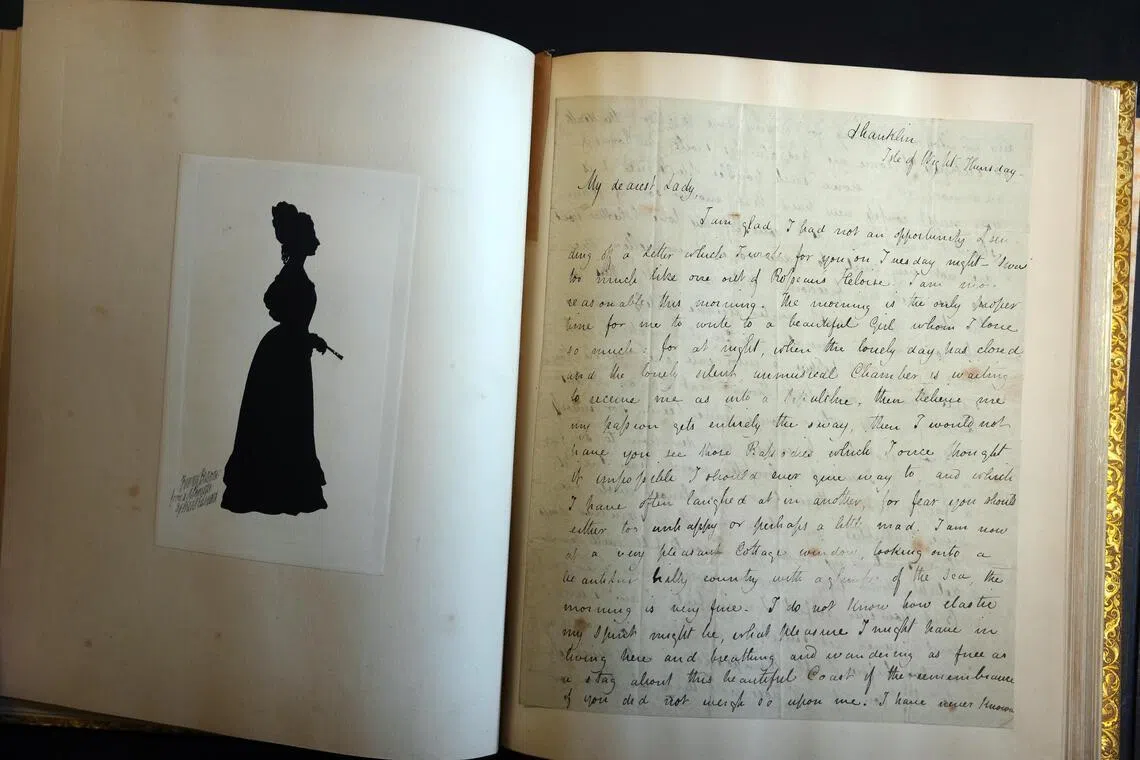 Fanny Brawne
from a silhouette
by
Shanklin
Isle of Wight Thursday-
My dearest Lady,
I am glad I had not an opportunity of sen
ding off a Letter which I wrote for you on Tuesday night- 'twas
too much like one out of Rousseaus Heloise. I am mo
reasonable this morning. The morning is the only proper
time for me to write to a beautiful Girl whom I love
so much: for at night, when the lonely day has closed
and the lonely silent unmusical Chamber is waiting
to receive me as into a Sepulchre, then believe me
my passion gets entirely the sway, then I would not
have you see those Rapsodies which I once thought
it impossible I should ever give way to, and which
I have often laughed at in another, for fear you should
either too unhappy or perhaps a little mad. I am now
at a very pleasant Cottage window, looking onto a
beautiful hilly country with a glimpse of the sea, the
morning is very fine. I do not know how elastic
my spirit might be, what pleasure I might have in
living here and breathing and wandering as free as
a stag about this beautiful Coast if the remembrance
of you did not weigh so upon me. I have never known